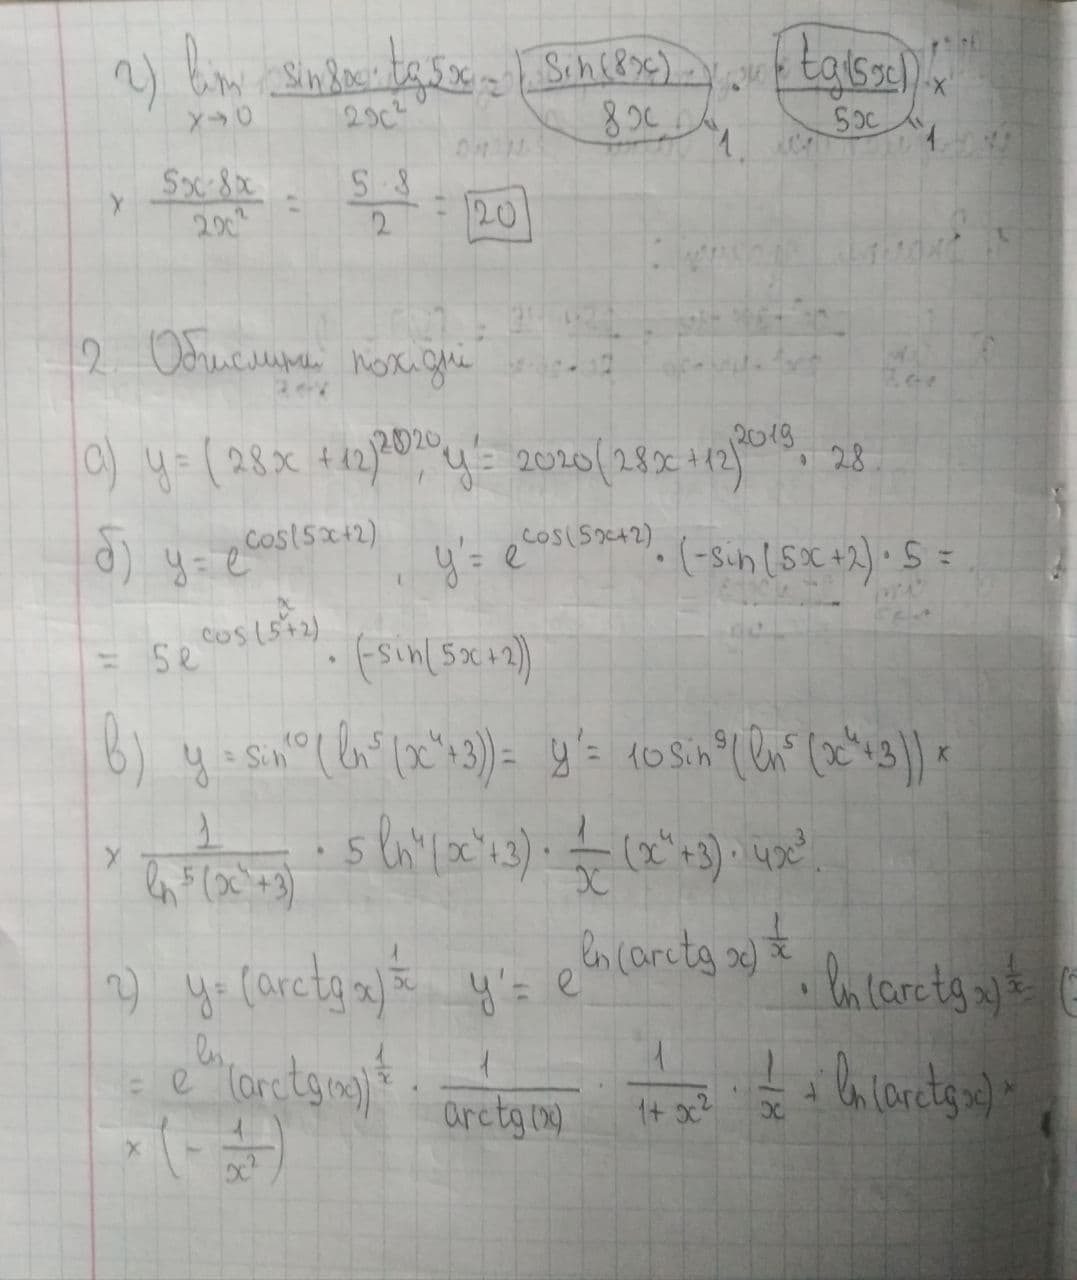 г) lim x→0 sin8x·tg5x / 2x² = sin(8x) / 8x "1 · tg(5x) / 5x "1 ×
× 5x·8x / 2x² = 5·8 / 2 = 20
2. Обчислити похідні
а) y=(28x+12)²⁰²⁰, y'=2020(28x+12)²⁰¹⁹·28
б) y=e^cos(5x+2), y'=e^cos(5x+2)·(-sin(5x+2)·5=
= 5e^cos(5x+2)·(-sin(5x+2))
в) y=sin¹⁰(ln⁵(x⁴+3))= y'=10sin⁹(ln⁵(x⁴+3))×
× 1 / ln⁵(x⁴+3) · 5ln⁴(x⁴+3)· 1/x (x⁴+3)·4x³.
г) y=(arctgx)^1/x y'=e^ln(arctgx)^1/x · ln(arctgx)^1/x =
= e^ln(arctg(x))^1/x · 1 / arctg(x) · 1 / 1+x² · 1/x + ln(arctgx)×
×(- 1/x²)